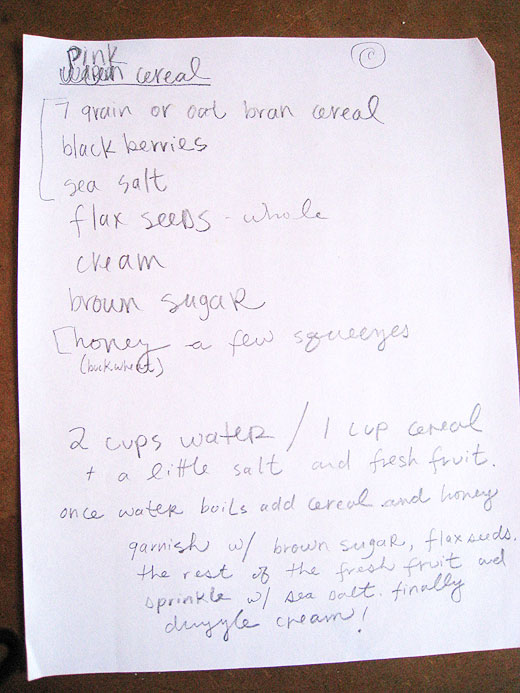 Pink
cereal
©
7 grain or oat bran cereal
blackberries
sea salt
flax seeds - whole
cream
brown sugar
[honey - a few squeezes
(buckwheat)
2 cups water / 1 cup cereal
+ a little salt and fresh fruit.
once water boils add cereal and honey
garnish w/ brown sugar, flax seeds.
the rest of the fresh fruit and
sprinkle w/ sea salt. finally
drizzle cream!